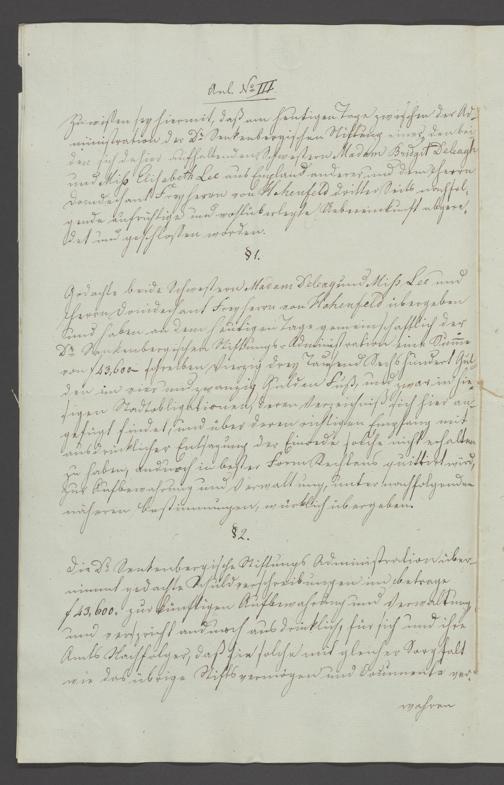 Anl. No III
Zu wissen sey hiermit, daß am heutigen Tage zwischen der Ad-
ministration der Dr. Senkenbergischen Stiftung einer, den bei-
den sich dahier aufhaltenden Schwestern Madam Bridgit Deleagh
und Miß Elisabeth Lee aus England anderer und dem Herrn
Domdechant Freyherrn von Hohenfeld dritter Seits nachfol-
gende aufrichtige und wohlüberlegte Uebereinkunft abgere-
det und geschlossen worden.
§ 1.
Gedachte beide Schwestern Madam Deleagh und Miß Lee und
Herr Domdechant Freyherr von Hohenfeld übergeben
und haben an dem heutigen Tage gemeinschaftlich der
Dr. Senkenbergischen Stiftungs-Administration eine Summe
von f 43,600 schreiben Vierzig drey Tausend Sechshundert Gul-
den im vier und zwanzig Gulden Fuß, und zwar in hie-
sigen Stadtobligationen, deren Verzeichniß sich hier an-
gefügt findet, und über deren richtigen Empfang mit
ausdrücklicher Entsagung der Einrede solche nicht erhalten
zu haben, andurch in bester Form Rechtens quittirt wird,
zur Aufbewahrung und Verwaltung, unter nachfolgenden
näheren Bestimmungen, würklich übergeben.
§ 2.
Die Dr. Senkenbergische Stiftungs Administration über-
nimmt gedachte Schuldverschreibungen im Betrage
f 43,600. zur künftigen Aufbewahrung und Verwaltung,
und verspricht andurch ausdrücklich, für sich und ihre
Amts Nachfolger, daß sie solche mit gleicher Sorgfalt
wie das übrige Stiftsvermögen und Documente ver-
wahren